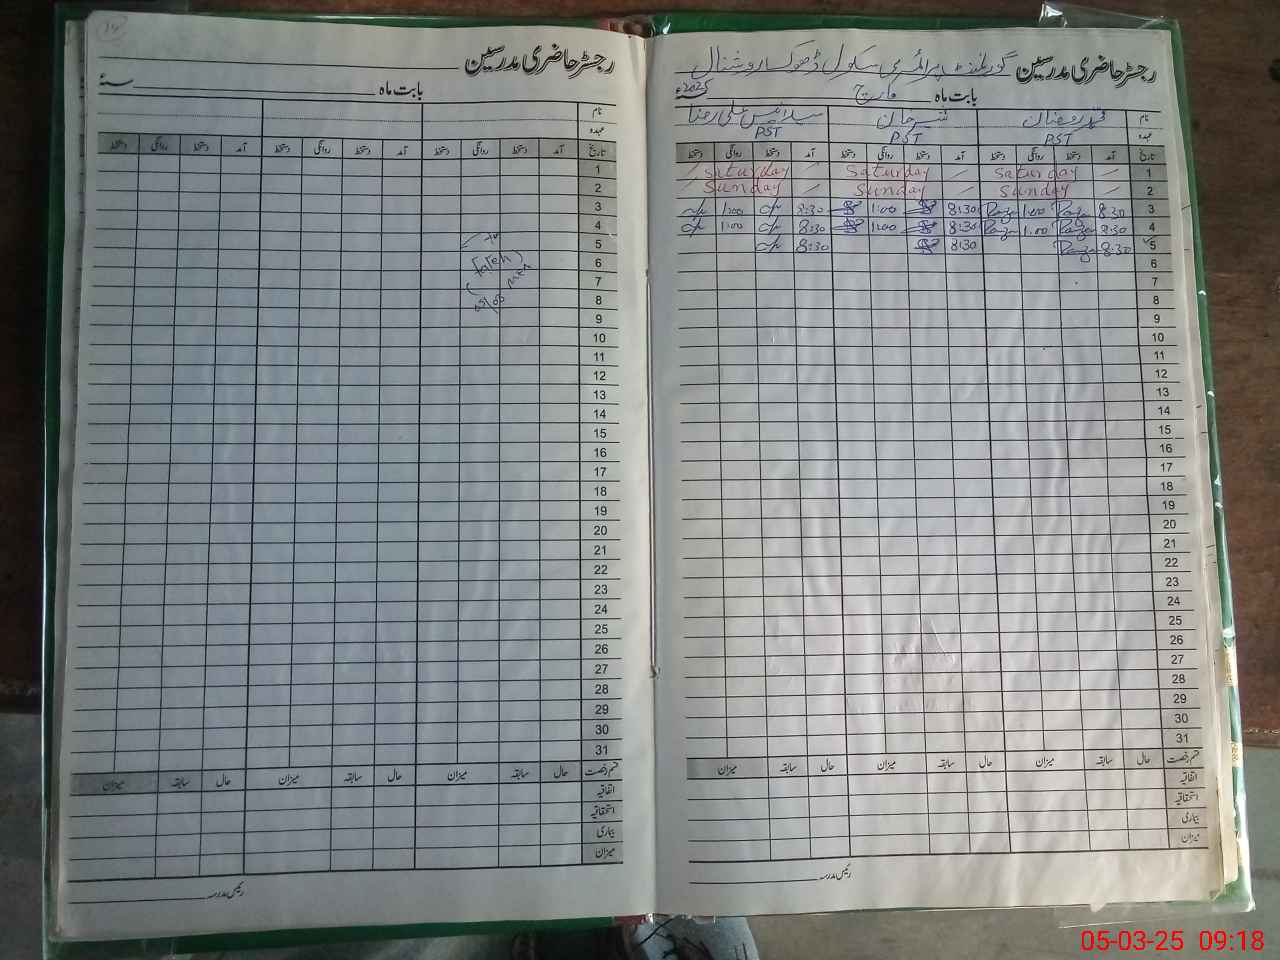 رجسٹر حاضری مدرسین گورنمنٹ پرائمری سکول ڈھوک
بابت ماہ مارچ 2025ء
نام
عہدہ PST PST PST
تاریخ آمد دستخط روانگی دستخط آمد دستخط روانگی دستخط آمد دستخط روانگی دستخط
1 Saturday Saturday Saturday
2 Sunday Sunday Sunday
3 8:30 1:00 8:30 1:00 8:30 1:00
4 8:30 1:00 8:30 1:00 8:30 1:00
5 8:30 8:30 8:30
6
7
8
9
10
11
12
13
14
15
16
17
18
19
20
21
22
23
24
25
26
27
28
29
30
31
قسم رخصت حال سابقہ میزان حال سابقہ میزان حال سابقہ میزان
اتفاقیہ
استحقاقیہ
بیماری
میزان
رئیس مدرسہ
رجسٹر حاضری مدرسین
بابت ماہ سنۂ
نام
عہدہ
تاریخ آمد دستخط روانگی دستخط آمد دستخط روانگی دستخط آمد دستخط روانگی دستخط
1
2
3
4
5
6
7
8
9
10
11
12
13
14
15
16
17
18
19
20
21
22
23
24
25
26
27
28
29
30
31
قسم رخصت حال سابقہ میزان حال سابقہ میزان حال سابقہ میزان
اتفاقیہ
استحقاقیہ
بیماری
میزان
رئیس مدرسہ
05-03-25 09:18